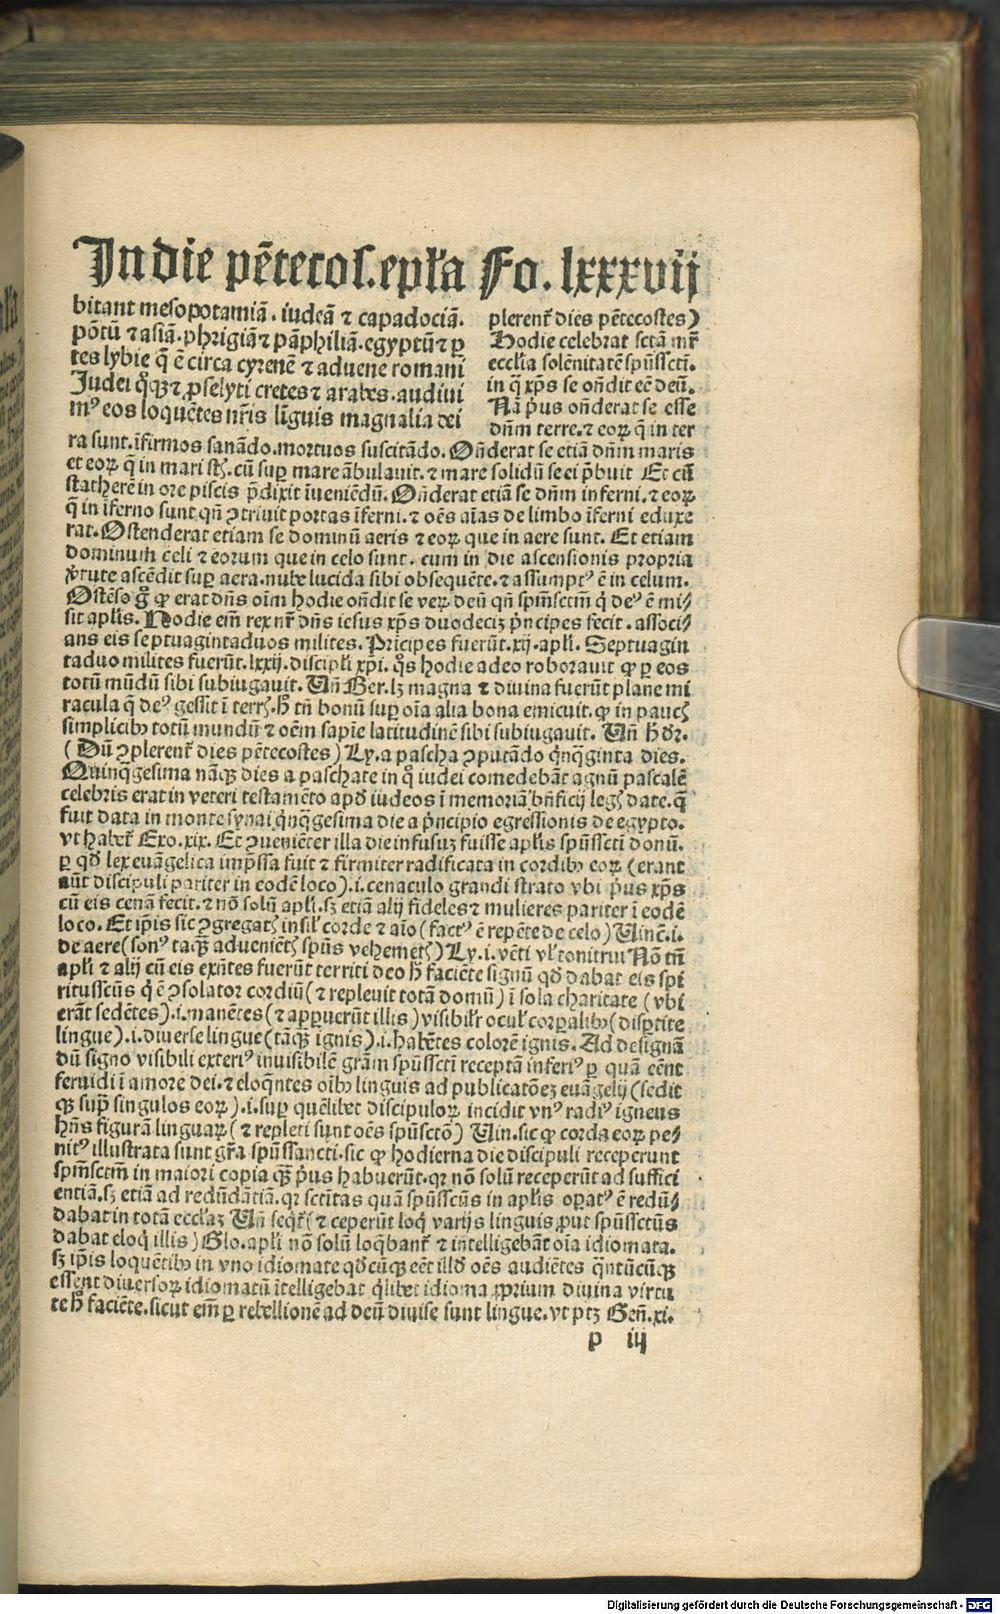 In die pēteco&#383;.epľa Fo. lxxxvij
bitant mesopotamiā. iudeā ⁊ capadociā.
pōtū ⁊ asiā. phrigiā ⁊ pāphiliā. egyptū ⁊ ꝑ
tes lybie q̄ ē circa cyrenē ⁊ aduene romani
Judei q̊ꝗ ⁊ ꝓselyti cretes ⁊ arabes. audiui
mꝰ eos loquētes nr̄is līguis magnalia dei
plerent̄ dies pētecostes)
Hodie celebrat sctā mr̄
ecclīa solēnitatē spūsscti.
in q̄ xp̄s se on̄dit eē deū.
Nā p̄us on̄derat se esse
dn̄m terre. ⁊ eoꝝ q̄ in ter
ra sunt. īfirmos sanādo. mortuos suscitādo. On̄derat se etiā dn̄m maris
et eoꝝ q̄ in mari sūt. cū suꝑ mare ābulauit. ⁊ mare solidū se ei p̄buit Et cū
statherē in ore piscis p̄dixit īueniēdū. On̄derat etiā se dn̄m inferni. ⁊ eoꝝ
q̄ in īferno sunt qn̄ ꝯtriuit portas īferni. ⁊ oēs aīas de limbo īferni eduxe
rat. Ostenderat etiam se dominū aeris ⁊ eoꝝ que in aere sunt. Et etiam
dominum celi ⁊ eorum que in celo sunt. cum in die ascensionis propria
v̄tute ascēdit suꝑ aera. nube lucida sibi obsequēte. ⁊ assumptꝰ ē in celum.
Ostēso g̊ ꝙ erat dn̄s oīm hodie on̄dit se veꝝ deū qn̄ spm̄sctm̄ q̇ deꝰ ē mi/
sit aplīs. Hodie em̄ rex nr̄ dn̄s iesus xp̄s duodeciꝫ p̄ncipes fecit. associ/
ans eis septuagintaduos milites. Prīcipes fuerūt. xij. aplī. Septuagin
taduo milites fuerūt. lxxij. discipłi xp̄i. q̊s hodie adeo roborauit ꝙ ꝑ eos
totū mūdū sibi subiugauit. Un̄ Ber. lꝫ magna ⁊ diuina fuerūt plane mi
racula q̄ deꝰ gessit ī terr. h̄ tn̄ bonū suꝑ oīa alia bona emicuit. ꝙ in pauc
simplicibꝰ totū mundū ⁊ oēm sapīe latitudinē sibi subiugauit. Un̄ h̄ dr̄.
(Dū ꝯplerent̄ dies pētecostes) Ly. a pascha ꝯputādo q̇nq̄ginta dies.
Quinq̄gesima nāꝗ dies a paschate in q̊ iudei comedebāt agnū pascalē
celebris erat in veteri testamēto apd̄ iudeos ī memoriā bn̄ficij leg date. q̄
fuit data in monte synai q̇nq̄gesima die a p̄ncipio egressionis de egypto.
vt habet̄ Exo. xix. Et ꝯueniēter illa die infusuꝫ fuisse aplīs spūsscti donū.
ꝑ qd̄ lex euāgelica imp̄ssa fuit ⁊ firmiter radificata in cordibꝰ eoꝝ (erant
aūt discipuli pariter in eodē loco). i. cenaculo grandi strato vbi p̄us xp̄s
cū eis cenā fecit. ⁊ nō solū aplī. sꝫ etiā alij fideles ⁊ mulieres pariter ī eodē
loco. Et ip̄is sic ꝯgregat insil̄ corde ⁊ aīo (factꝰ ē repēte de celo) Uinē. i.
de aere (sonꝰ taꝗ̄ aduenīēt spūs vehemēt) Ly. i. vēti vl̄ tonitrui Nō tn̄
aplī ⁊ alij cū eis exn̄tes fuerūt territi deo h̄ faciēte signū qd̄ dabat eis spi
ritusscūs q̇ ē ꝯsolator cordiū (⁊ repleuit totā domū) ī sola charitate (vbi
erāt sedētes). i. manētes (⁊ apꝑuerūt illis) visibilr̄ ocul̄ corꝑalibꝰ (disꝑtite
lingue). i. diuerse lingue (tāꝗ̄ ignis). i. habētes colorē ignis. Ad designā
dū signo visibili exteriꝰ inuisibilē grām spūsscti receptā inferiꝰ ꝑ quā eēnt
feruidi ī amore dei. ⁊ eloq̄ntes oībꝰ linguis ad publicatōeꝫ euāgelij (sedit
ꝗ sup̄ singulos eoꝝ). i. suꝑ quēlibet discipuloꝝ incidit vnꝰ radiꝰ igneus
hn̄s figurā linguaꝝ (⁊ repleti sunt oēs spūsctō) Uin. sic ꝙ corda eoꝝ pe/
nitꝰ illustrata sunt gr̄a spūssancti. sic ꝙ hodierna die discipuli receperunt
spm̄sctm̄ in maiori copia ꝗ̄ p̄us habuerūt. qꝛ nō solū receperūt ad suffici
entiā. sꝫ etiā ad redūdātiā. qꝛ sctītas quā spūsscūs in aplīs oꝑatꝰ ē redū/
dabat in totā eccłiaꝫ Un̄ seqt̄ (⁊ ceperūt loq̇ varijs linguis ꝓut spūssctūs
dabat eloq̇ illis) Glo. aplī nō solū loq̄bant̄ ⁊ intelligebāt oīa idiomata.
sꝫ ip̄is loquētibꝰ in vno idiomate qd̄cūꝗ eēt illd̄ oēs audiētes q̄ntūcūꝗ
essent diuersoꝝ idiomatū ītelligebat q̇libet idioma ꝓprium diuina virtu
te h̄ faciēte. sicut em̄ ꝑ rebellionē ad deū diuise sunt lingue. vt ptꝫ Gen̄. xi.
p iij
Digitalisierung gefördert durch die Deutsche Forschungsgemeinschaft - DFG